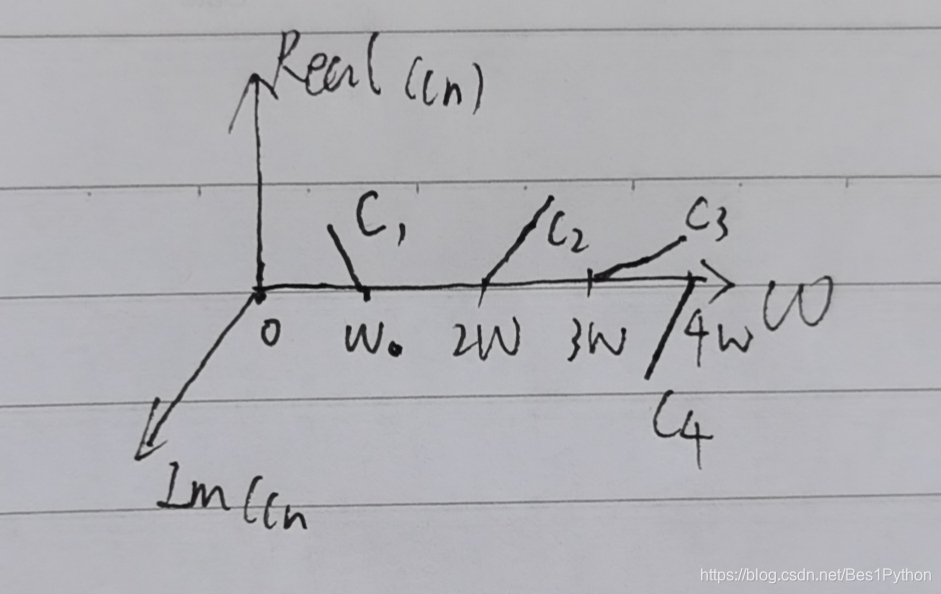 Real (Cn)
C1
C2
C3
0
W0
2W
3W
4W
W
C4
Im (Cn
https://blog.csdn.net/Bes1Python